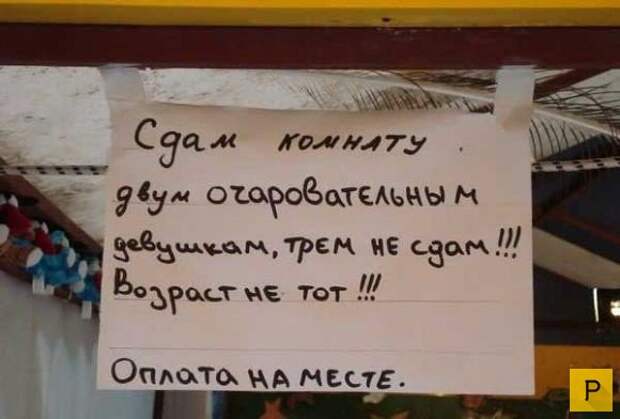 Сдам комнату.
двум очаровательным
девушкам, трем не сдам!!!
Возраст не тот !!!
Оплата на месте.
P